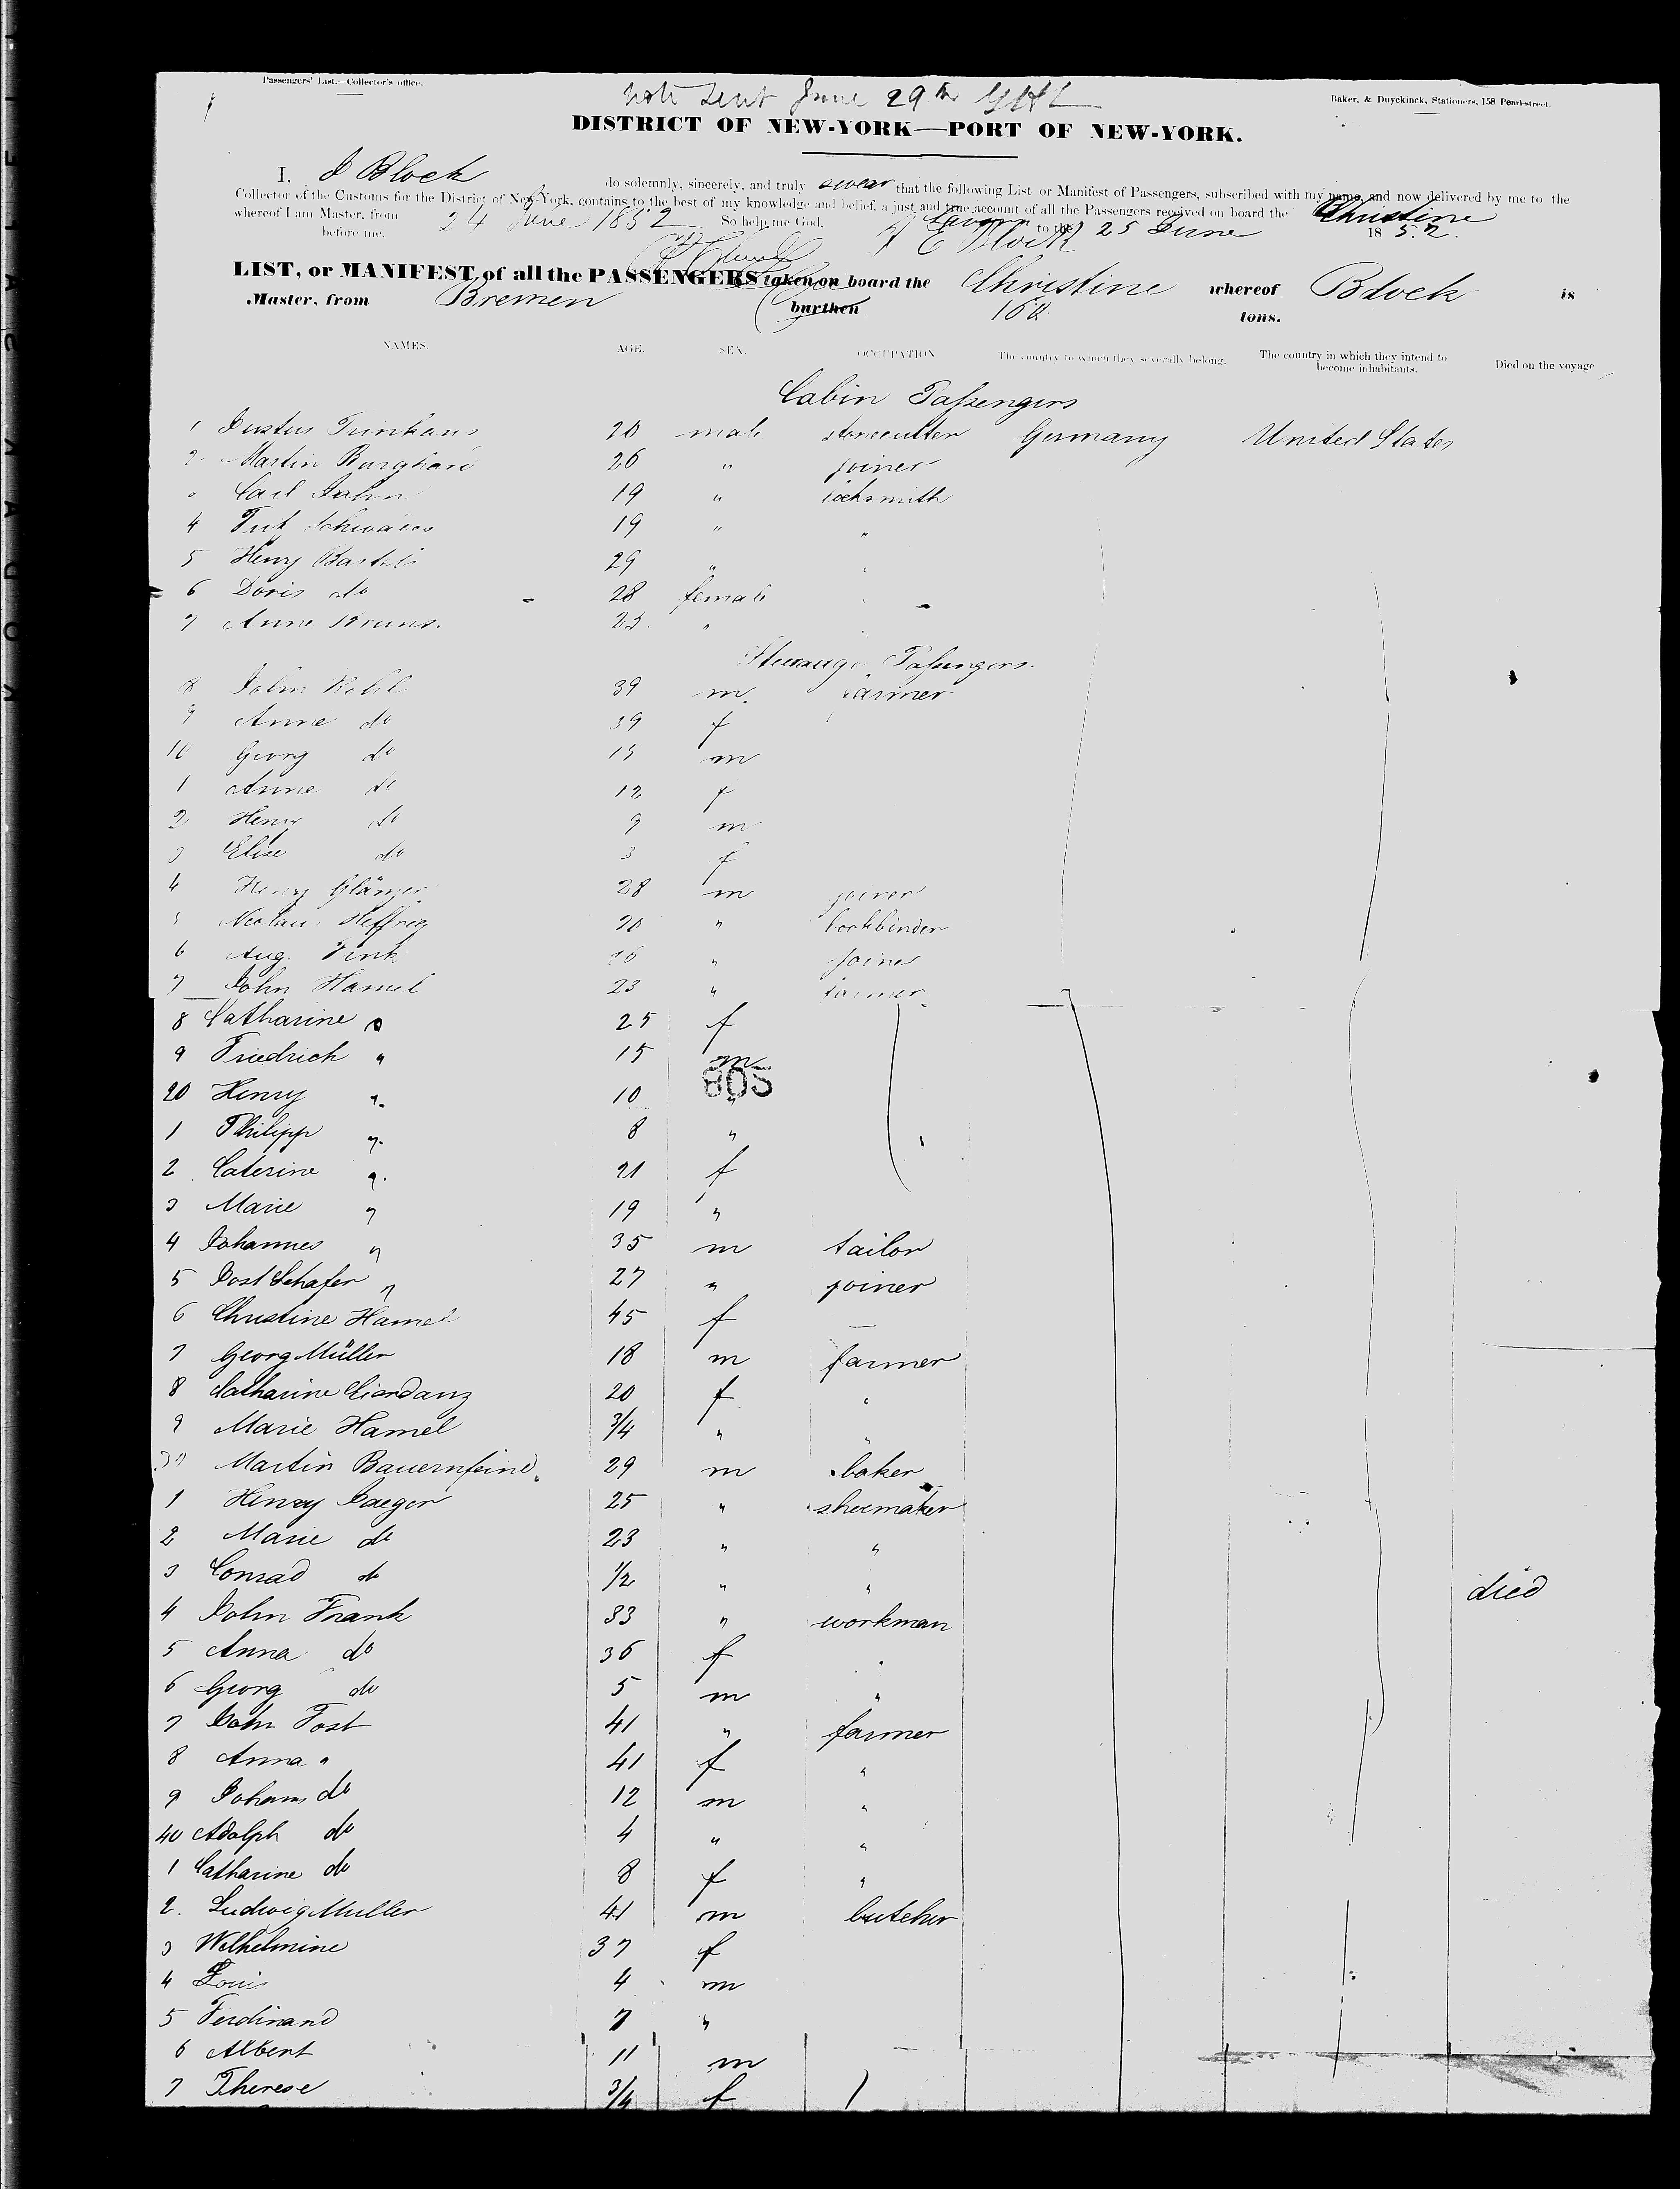 Passengers' List.—Collector's office.
Note sent June 29th
Baker, & Duyckinck, Stationers, 158 Pearl-street.
DISTRICT OF NEW-YORK—PORT OF NEW-YORK.
I, Block do solemnly, sincerely, and truly swear that the following List or Manifest of Passengers, subscribed with my name, and now delivered by me to the
Collector of the Customs for the District of New-York, contains to the best of my knowledge and belief, a just and true account of all the Passengers received on board the Christine
whereof I am Master, from to the
24 June 1852 So help me God. Block 25 June 1852.
before me.
LIST, or MANIFEST, of all the PASSENGERS taken on board the Christine whereof Block is
Master, from Bremen burthen tons.
NAMES. AGE. SEX. OCCUPATION The country to which they severally belong. The country in which they intend to become inhabitants. Died on the voyage
Cabin Passengers
1 Justus Trinkaus 20 male stonecutter Germany United States
2 Martin Burghard 26 " joiner
Carl Jahn 19 " locksmith
4 19 " "
5 Henry Bartels 29 "
6 Doris do 28 female
7 Anne Bruns. 23 "
Steerage Passengers
8 John 39 m. farmer
9 Anne do 39 f
10 Georg do 15 m
1 Anne do 12 f
2 Henry do 9 m
3 Elise do 3 f
4 Henry Glänzer 28 m joiner
5 20 " bookbinder
6 Aug. Fink " joiner
7 John Hamel 23 " farmer
8 Catharine " 25 f
9 Friedrich " 15 m
805
20 Henry " 10 "
1 Philipp " 8 "
2 Caterine " 21 f
3 Marie " 19 "
4 Johannes " 35 m tailor
5 Jost Schafer " 27 " joiner
6 Christine Hamel 45 f —
7 Georg Müller 18 m farmer
8 Catharine 20 f "
9 Marie Hamel 3/4 " "
30 Martin Bauernfeind 29 m baker
1 Henry Jaeger 25 " shoemaker
2 Marie do 23 " "
3 Conrad do 1/2 " " died
4 John Frank 33 " workman
5 Anna do 36 f "
6 Georg do 5 m "
7 John Fost 41 " farmer
8 Anna " 41 f "
9 Johann do 12 m "
40 Adolph do 4 " "
1 Catharine do 8 f "
2. Ludwig Muller 41 m butcher
3 Wilhelmine 37 f
4 Louis 4 m
5 Ferdinand 7 "
6 Albert 11 m
7 Therese 3/4 f